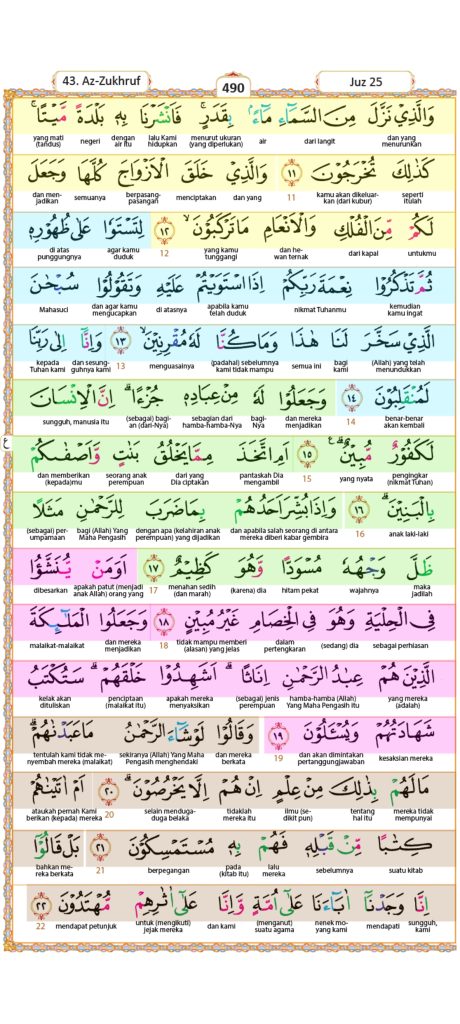 43. Az-Zukhruf
490
Juz 25
وَالَّذِيْ نَزَّلَ مِنَ السَّمَاۤءِ مَاۤءًۢ بِقَدَرٍۚ فَاَنْشَرْنَا بِهٖ بَلْدَةً مَّيْتًاۚ
dan yang menurunkan dari langit air menurut ukuran (yang diperlukan) lalu Kami hidupkan dengan air itu negeri yang mati (tandus)
كَذٰلِكَ تُخْرَجُوْنَ ۝١١ وَالَّذِيْ خَلَقَ الْاَزْوَاجَ كُلَّهَا وَجَعَلَ
seperti itulah kamu akan dikeluarkan (dari kubur) 11 dan yang menciptakan berpasang-pasangan semuanya dan menjadikan
لَكُمْ مِّنَ الْفُلْكِ وَالْاَنْعَامِ مَا تَرْكَبُوْنَۙ ۝١٢ لِتَسْتَوٗا عَلٰى ظُهُوْرِهٖ
untukmu dari kapal dan hewan ternak yang kamu tunggangi 12 agar kamu duduk di atas punggungnya
ثُمَّ تَذْكُرُوْا نِعْمَةَ رَبِّكُمْ اِذَا اسْتَوَيْتُمْ عَلَيْهِ وَتَقُوْلُوْا سُبْحٰنَ
kemudian kamu ingat nikmat Tuhanmu apabila kamu telah duduk di atasnya dan agar kamu mengucapkan Mahasuci
الَّذِيْ سَخَّرَ لَنَا هٰذَا وَمَا كُنَّا لَهٗ مُقْرِنِيْنَۙ ۝١٣ وَاِنَّآ اِلٰى رَبِّنَا
(Allah) yang telah menundukkan bagi kami semua ini (padahal) sebelumnya kami tidak mampu menguasainya 13 dan sesungguhnya kami kepada Tuhan kami
لَمُنْقَلِبُوْنَ ۝١٤ وَجَعَلُوْا لَهٗ مِنْ عِبَادِهٖ جُزْءًاۗ اِنَّ الْاِنْسَانَ
benar-benar akan kembali 14 dan mereka menjadikan bagi-Nya sebagian dari hamba-hamba-Nya (sebagai) bagian (dari-Nya) sungguh, manusia itu
لَكَفُوْرٌ مُّبِيْنٌۗ ۝١٥ اَمِ اتَّخَذَ مِمَّا يَخْلُقُ بَنٰتٍ وَّاَصْفٰىكُمْ
pengingkar (nikmat Tuhan) yang nyata 15 pantaskah Dia mengambil dari yang Dia ciptakan anak perempuan dan memberikan (kepada)mu
بِالْبَنِيْنَ ۝١٦ وَاِذَا بُشِّرَ اَحَدُهُمْ بِمَا ضَرَبَ لِلرَّحْمٰنِ مَثَلًا
anak laki-laki 16 dan apabila salah seorang di antara mereka diberi kabar gembira dengan apa (kelahiran anak perempuan) yang dijadikan bagi (Allah) Yang Maha Pengasih (sebagai) perumpamaan
ظَلَّ وَجْهُهٗ مُسْوَدًّا وَّهُوَ كَظِيْمٌ ۝١٧ اَوَمَنْ يُّنَشَّؤُا
maka jadilah wajahnya hitam pekat (karena) dia menahan sedih (dan marah) 17 apakah patut (menjadi anak Allah) orang yang dibesarkan
فِى الْحِلْيَةِ وَهُوَ فِى الْخِصَامِ غَيْرُ مُبِيْنٍ ۝١٨ وَجَعَلُوا الْمَلٰۤىِٕكَةَ
sebagai perhiasan (sedang) dia dalam pertengkaran tidak mampu memberi (alasan) yang jelas 18 dan mereka menjadikan malaikat-malaikat
الَّذِيْنَ هُمْ عِبٰدُ الرَّحْمٰنِ اِنَاثًاۗ اَشَهِدُوْا خَلْقَهُمْۗ سَتُكْتَبُ
yang mereka (adalah) hamba-hamba (Allah) Yang Maha Pengasih itu (sebagai) jenis perempuan apakah mereka menyaksikan penciptaan (malaikat itu) kelak akan dituliskan
شَهَادَتُهُمْ وَيُسْـَٔلُوْنَ ۝١٩ وَقَالُوْا لَوْ شَاۤءَ الرَّحْمٰنُ مَا عَبَدْنٰهُمْۗ
kesaksian mereka dan akan dimintakan pertanggungjawaban 19 dan mereka berkata sekiranya (Allah) Yang Maha Pengasih menghendaki tentulah kami tidak menyembah mereka (malaikat)
مَا لَهُمْ بِذٰلِكَ مِنْ عِلْمٍ اِنْ هُمْ اِلَّا يَخْرُصُوْنَۗ ۝٢٠ اَمْ اٰتَيْنٰهُمْ
mereka tidak mempunyai tentang hal itu ilmu (sedikit pun) tidaklah mereka itu selain menduga-duga belaka 20 ataukah pernah Kami berikan (kepada) mereka
كِتٰبًا مِّنْ قَبْلِهٖ فَهُمْ بِهٖ مُسْتَمْسِكُوْنَ ۝٢١ بَلْ قَالُوْٓا
suatu kitab sebelumnya lalu mereka pada (kitab itu) berpegangan 21 bahkan mereka berkata
اِنَّا وَجَدْنَآ اٰبَاۤءَنَا عَلٰٓى اُمَّةٍ وَّاِنَّا عَلٰٓى اٰثٰرِهِمْ مُّهْتَدُوْنَ ۝٢٢
sungguh, kami mendapati nenek moyang kami (menganut) suatu agama dan kami untuk (mengikuti) jejak mereka mendapat petunjuk 22
ع